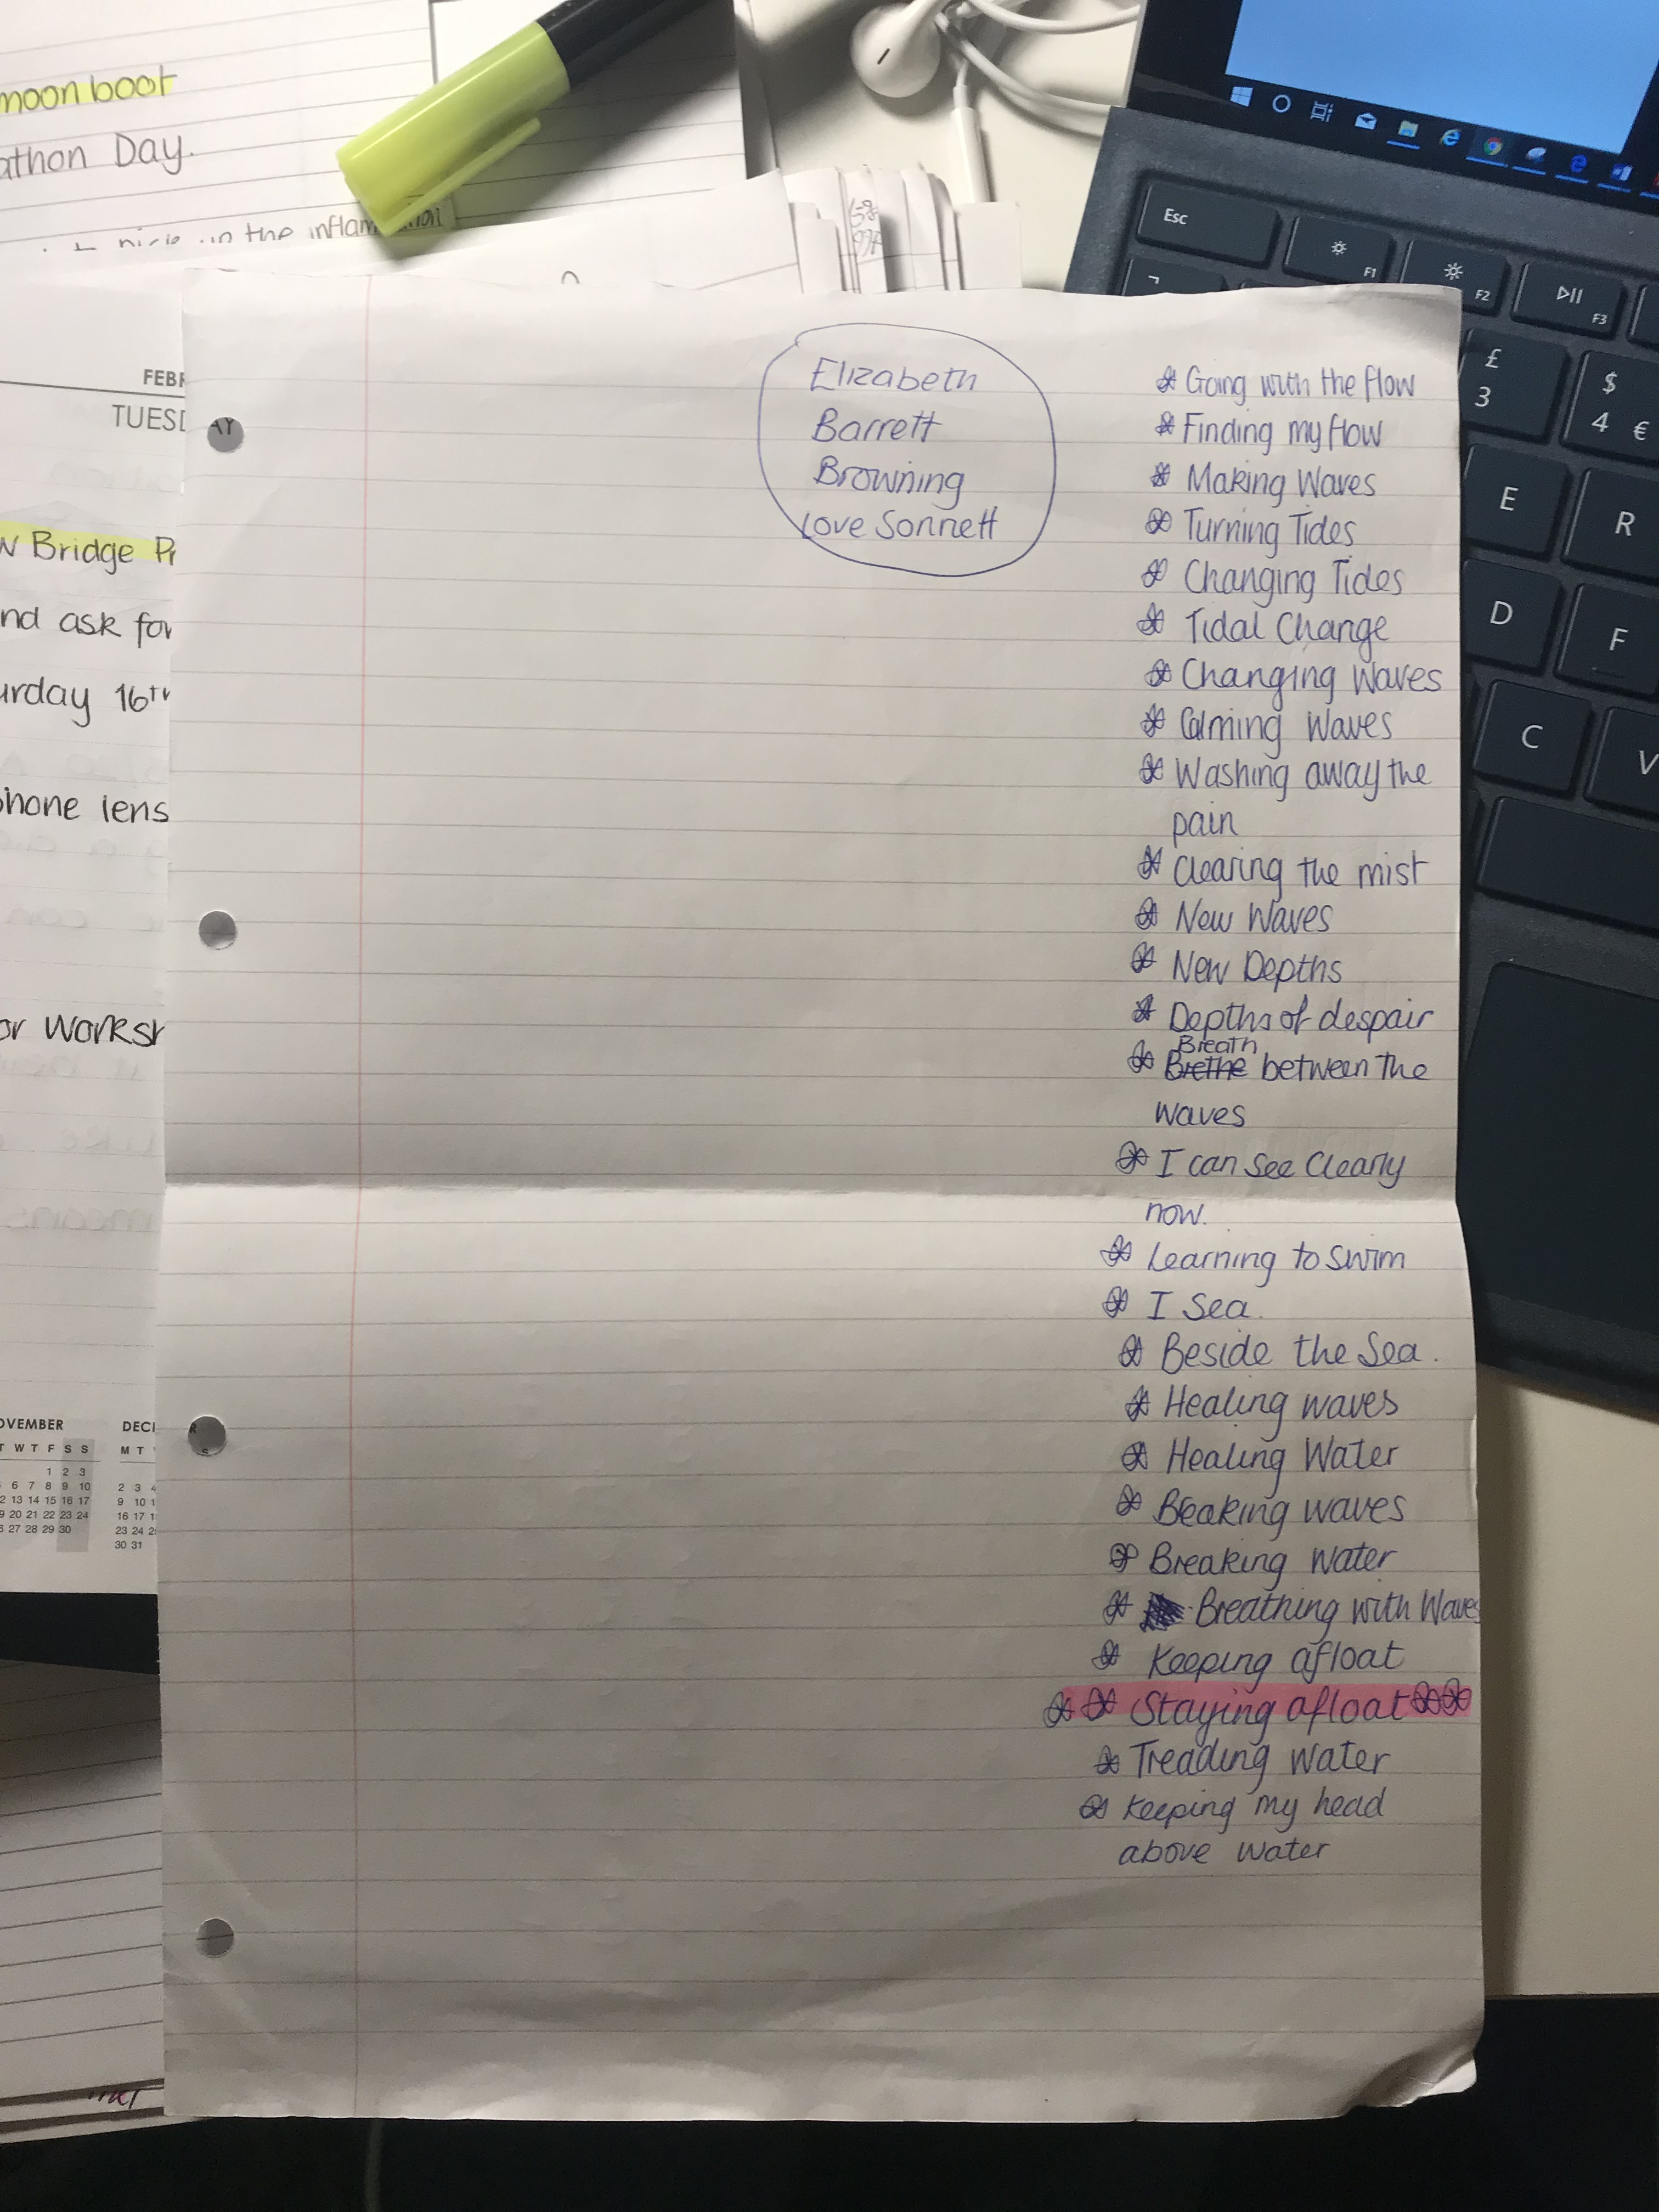 moon boot
athon Day.
pick up the inflam
Esc
F1
F2
F3
£
3
$
4 €
E
R
D
F
C
V
FEBR
TUESDAY
w Bridge Pr
nd ask for
urday 16th
phone lens
or Worksh
OVEMBER
T W T F S S
1 2 3
6 7 8 9 10
2 13 14 15 16 17
9 20 21 22 23 24
6 27 28 29 30
DECE
M T
2 3 4
9 10 1
16 17 1
23 24 2
30 31
Elizabeth
Barrett
Browning
Love Sonnett
Going with the flow
Finding my flow
Making Waves
Turning Tides
Changing Tides
Tidal Change
Changing Waves
Calming Waves
Washing away the
pain
Clearing the mist
New Waves
New Depths
Depths of despair
Breath
Brethe between the
waves
I can see clearly
now.
Learning to swim
I Sea.
Beside the Sea.
Healing waves
Healing Water
Breaking waves
Breaking water
Breathing with Waves
Keeping afloat
Staying afloat
Treading water
Keeping my head
above water